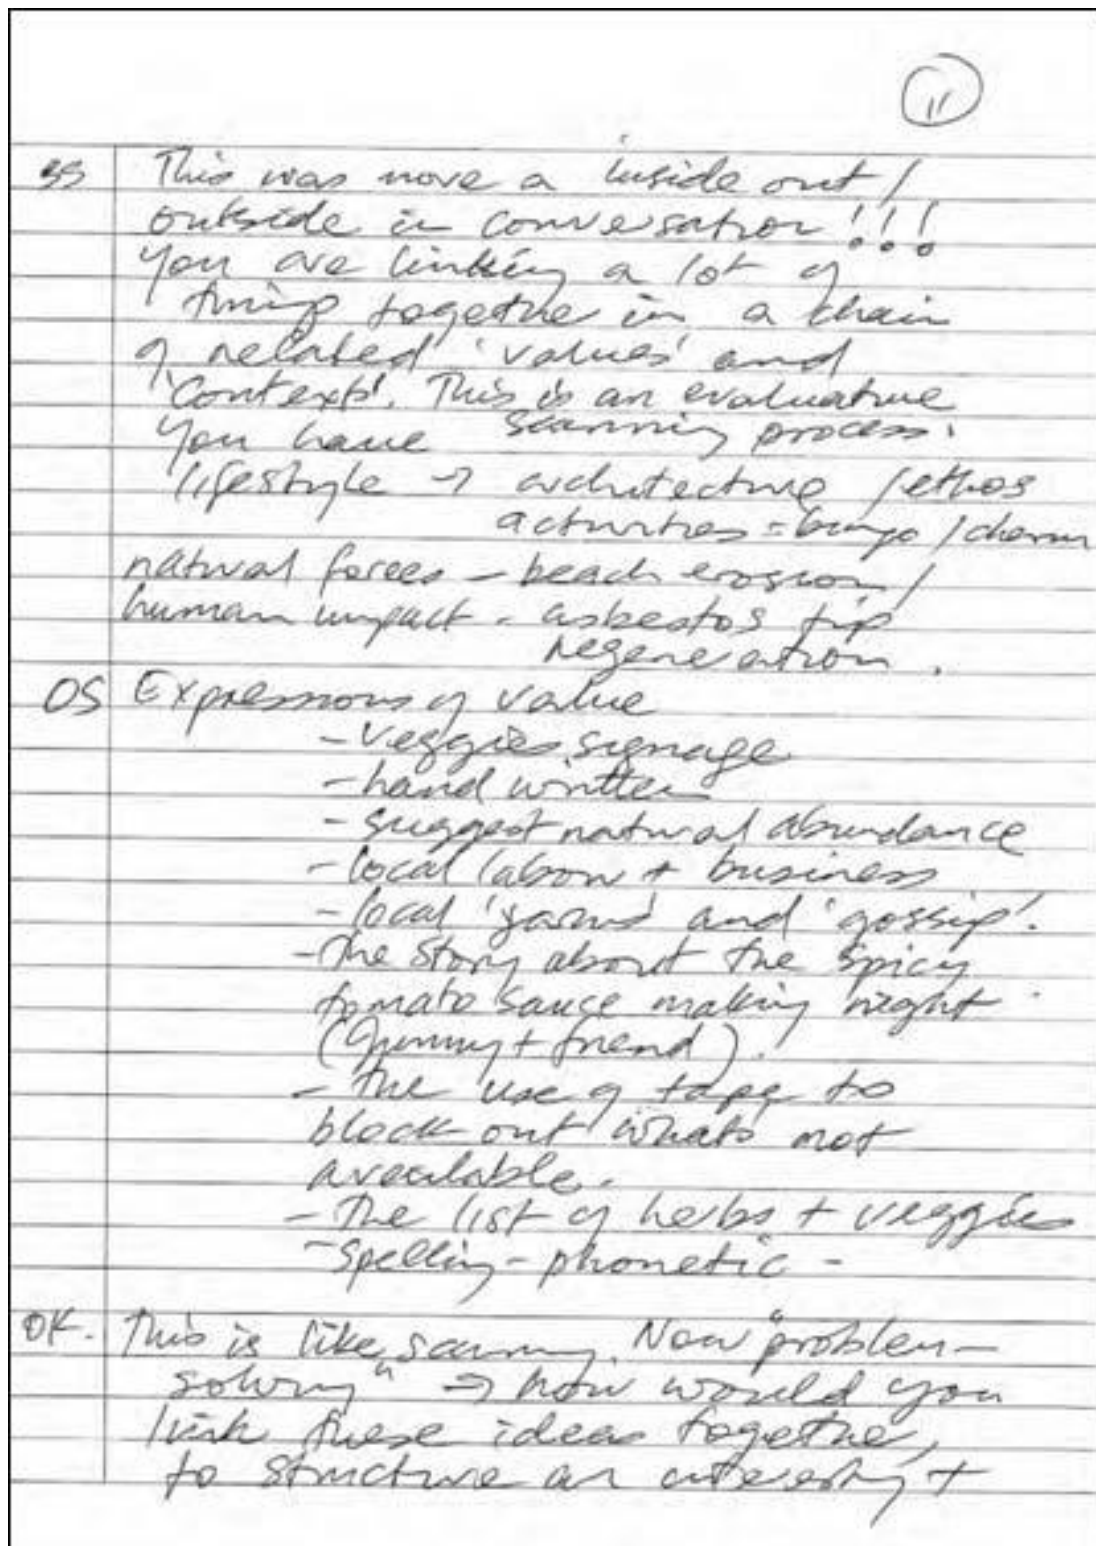 11
SS This was more a inside out /
outside in conversation !!!
You are linking a lot of
things together in a chain
of related 'values' and
'contexts'. This is an evaluative
You have scanning process.
lifestyle → architecture / ethos
activities = bingo /
natural forces - beach erosion /
human impact - asbestos tip
regeneration.
OS Expressions of value
- veggies signage
- hand written
- suggest natural abundance
- local labour + business
- local 'yarns' and 'gossip'.
- The story about the spicy
tomato sauce making night
( + friend).
- The use of tape to
block out whats not
available.
- The list of herbs + veggies
- Spelling - phonetic -
OK. This is like scanning. Now "problem-
solving" → how would you
link these ideas together,
to structure an interesting +